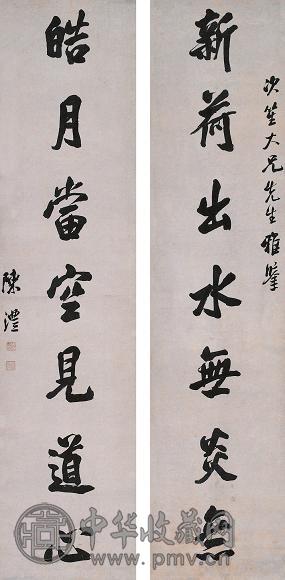 笙大兄先生雅
新荷出水無炎
皓月當空見道心
陳澧
中华收藏网
www.pmv.cn